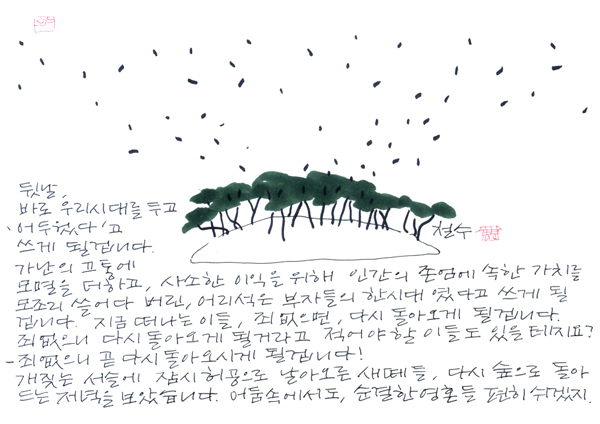 철수
뒷날,
바로 우리시대를 두고
'어두웠다'고
쓰게 될겁니다.
가난의 고통에
모멸을 더하고, 사소한 이익을 위해 인간의 존엄에 속한 가치를
모조리 쓸어다 버린, 어리석은 부자들의 한시대 였다고 쓰게 될
겁니다. 지금 떠나는 이들, 죄없으면, 다시 돌아오게 될겁니다.
죄없으니 다시 돌아오게 될거라고 적어야할 이들도 있을 테지요?
- 죄없으니 곧 다시 돌아오시게 될겁니다!
개짖는 서슬에 잠시 허공으로 날아오른 새떼들, 다시 숲으로 돌아
드는 저녁을 보았습니다. 어둠속에서도, 순결한 영혼들 편히 쉬겠지.